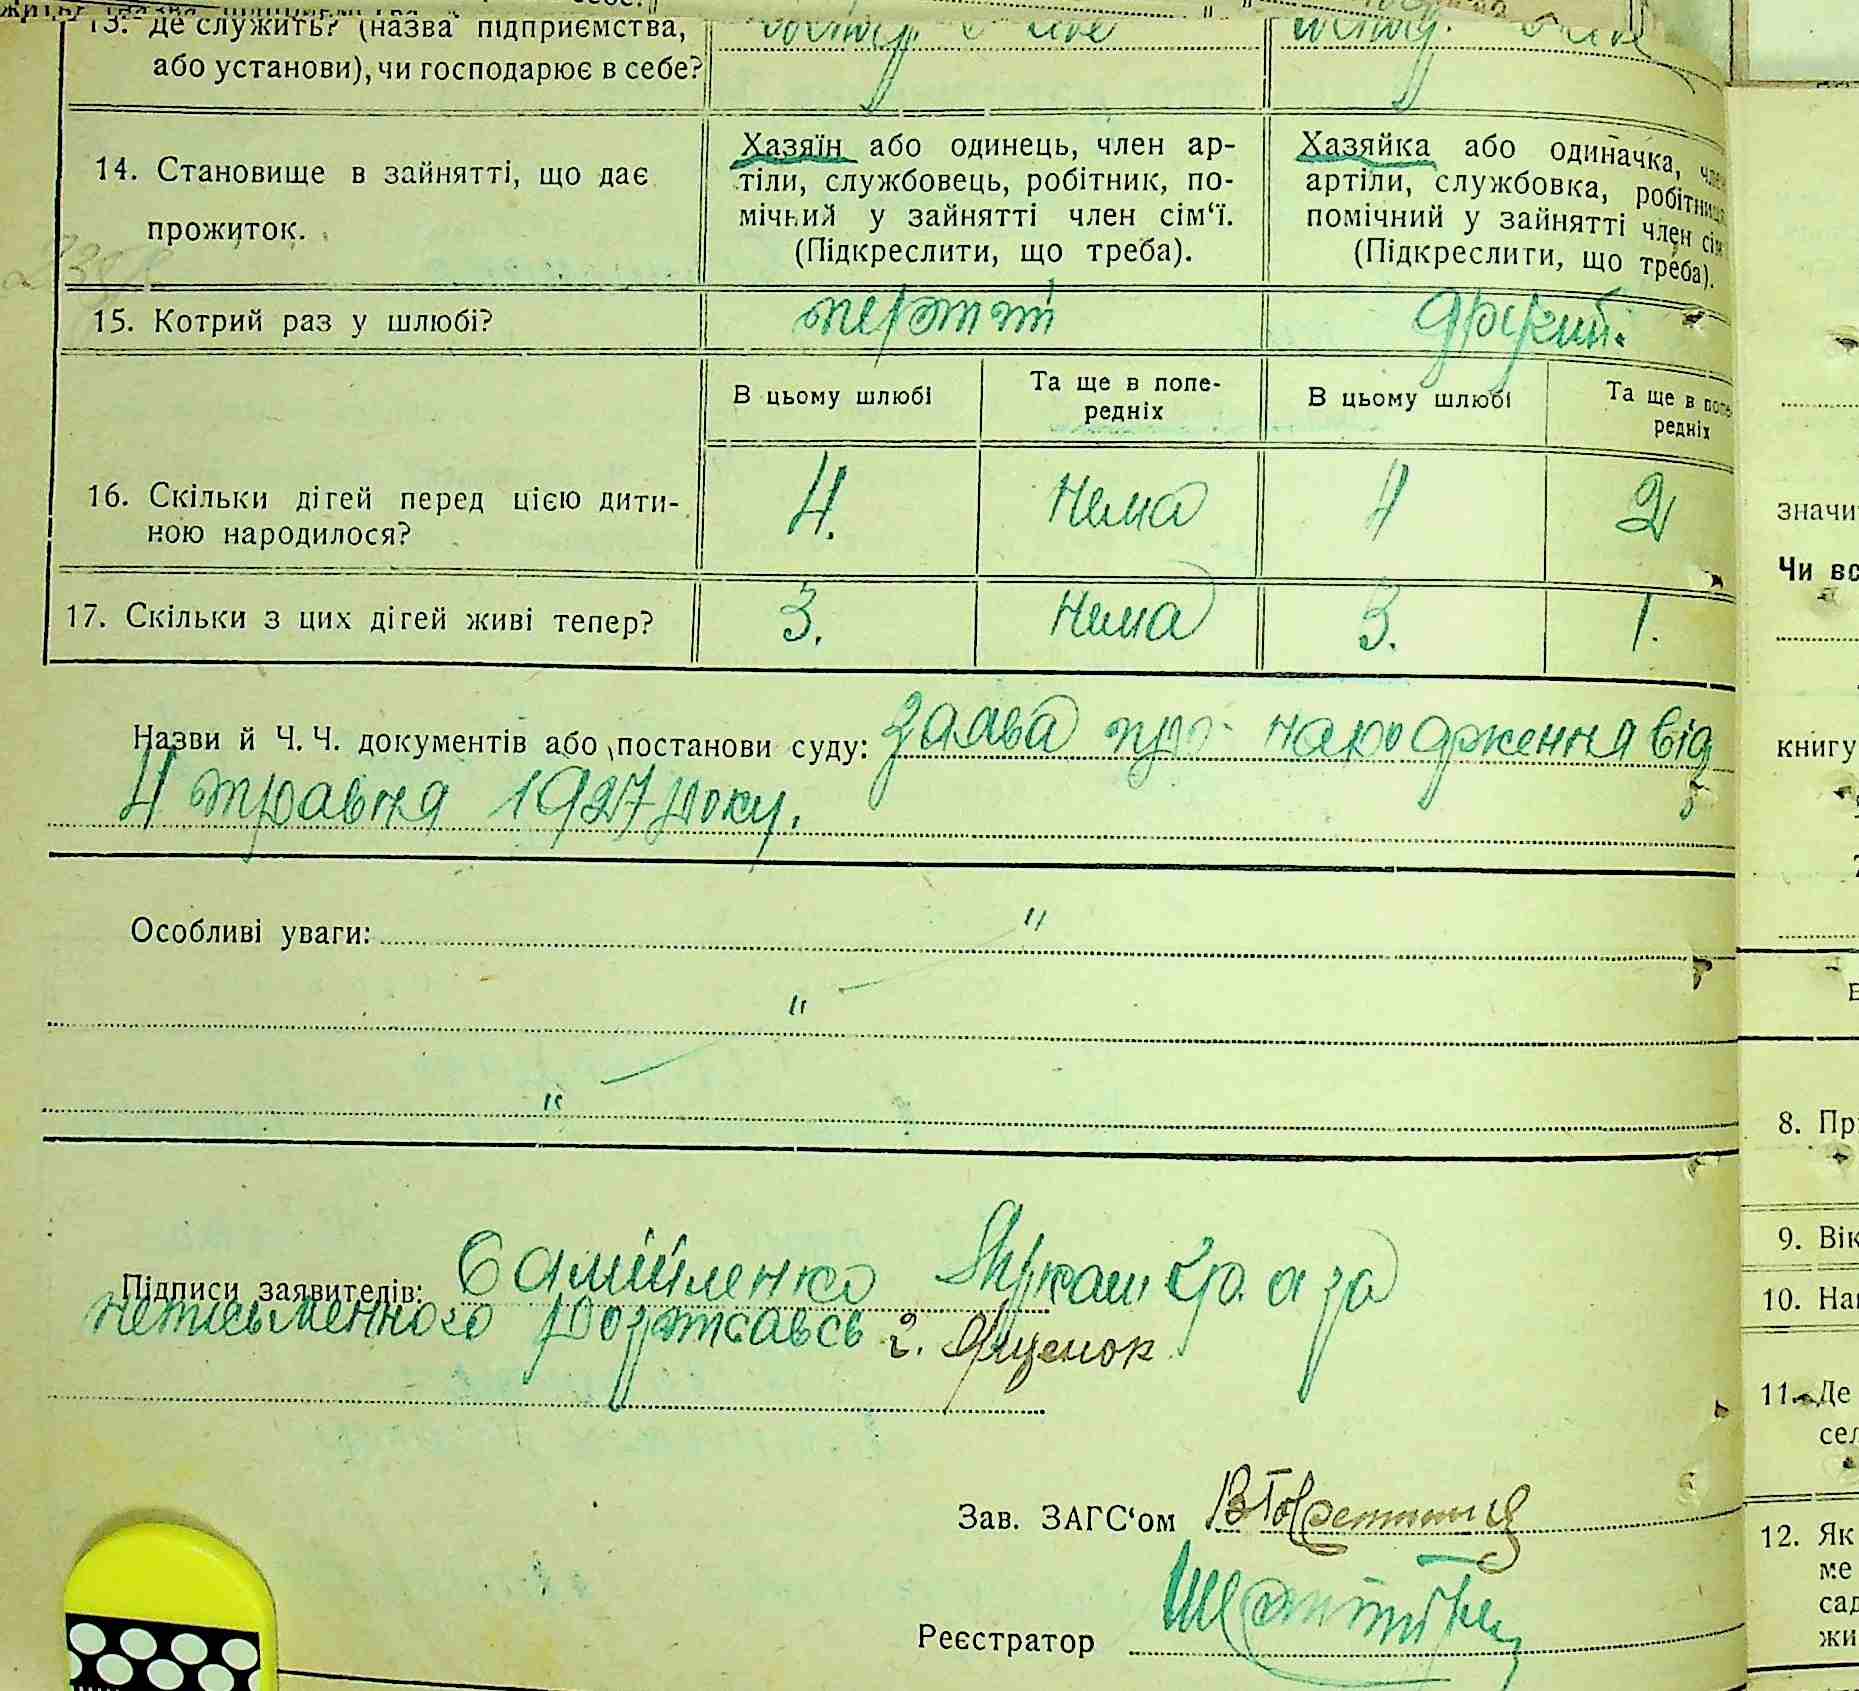 13. Де служить? (назва підприємства,
або установи), чи господарює в себе?
господ. в себе
господ. в себе
14. Становище в зайнятті, що дає
прожиток.
Хазяїн або одинець, член ар-
тіли, службовець, робітник, по-
мічний у зайнятті член сім‘ї.
(Підкреслити, що треба).
Хазяйка або одиначка, член
артіли, службовка, робітниця,
помічний у зайнятті член сім
(Підкреслити, що треба).
15. Котрий раз у шлюбі?
перший
другий.
В цьому шлюбі
Та ще в попе-
редніх
В цьому шлюбі
Та ще в попе
редніх
16. Скільки дітей перед цією дити-
ною народилося?
4.
нема
4
2
17. Скільки з цих дітей живі тепер?
3.
нема
3.
1.
Назви й Ч. Ч. документів або постанови суду: Заява про народження від
4 травня 1927 року.
Особливі уваги: "
"
"
Підписи заявителів: Самійленко а за
неписьменного розписавсь
Зав. ЗАГС‘ом
Реєстратор
значи
Чи вс
книгу
8. Пр
9. Вік
10. На
11. Де
сел
12. Як
ме
сад
жи